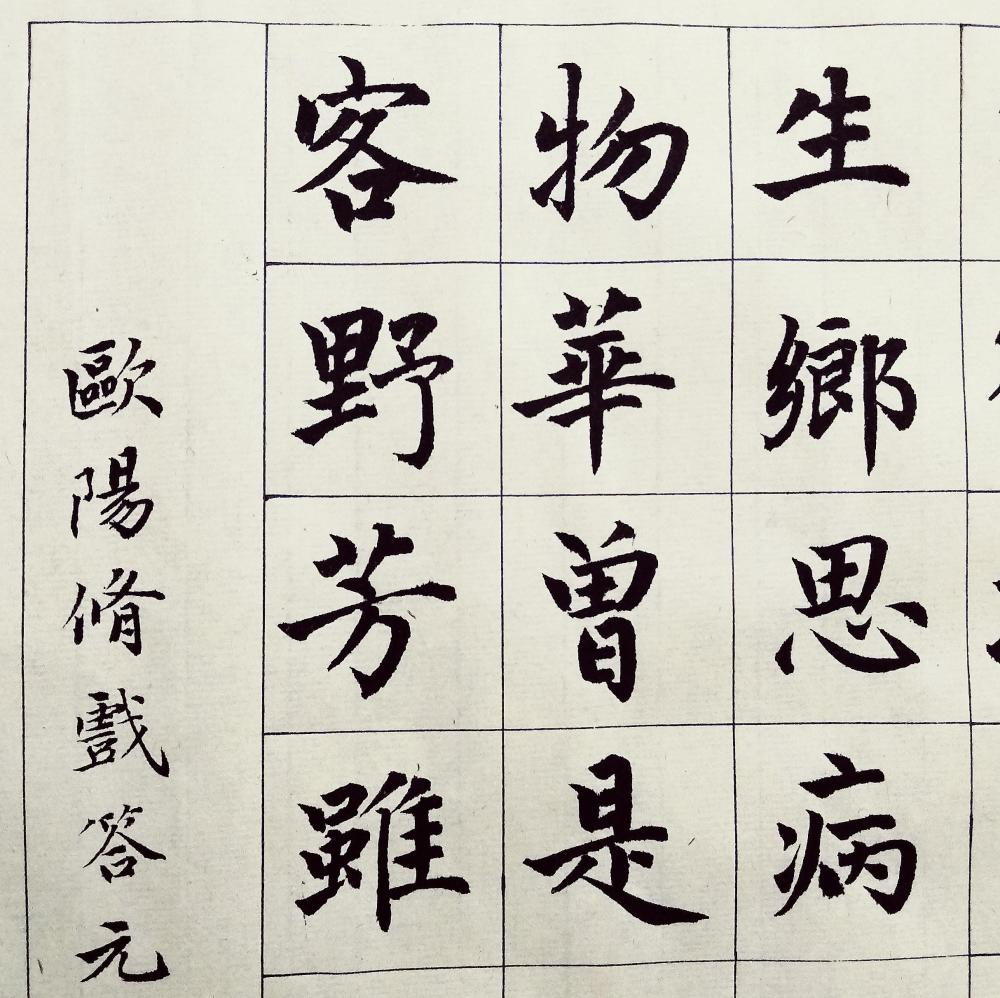 生鄉思病
物華曾是
客野芳雖
歐陽脩戲答元